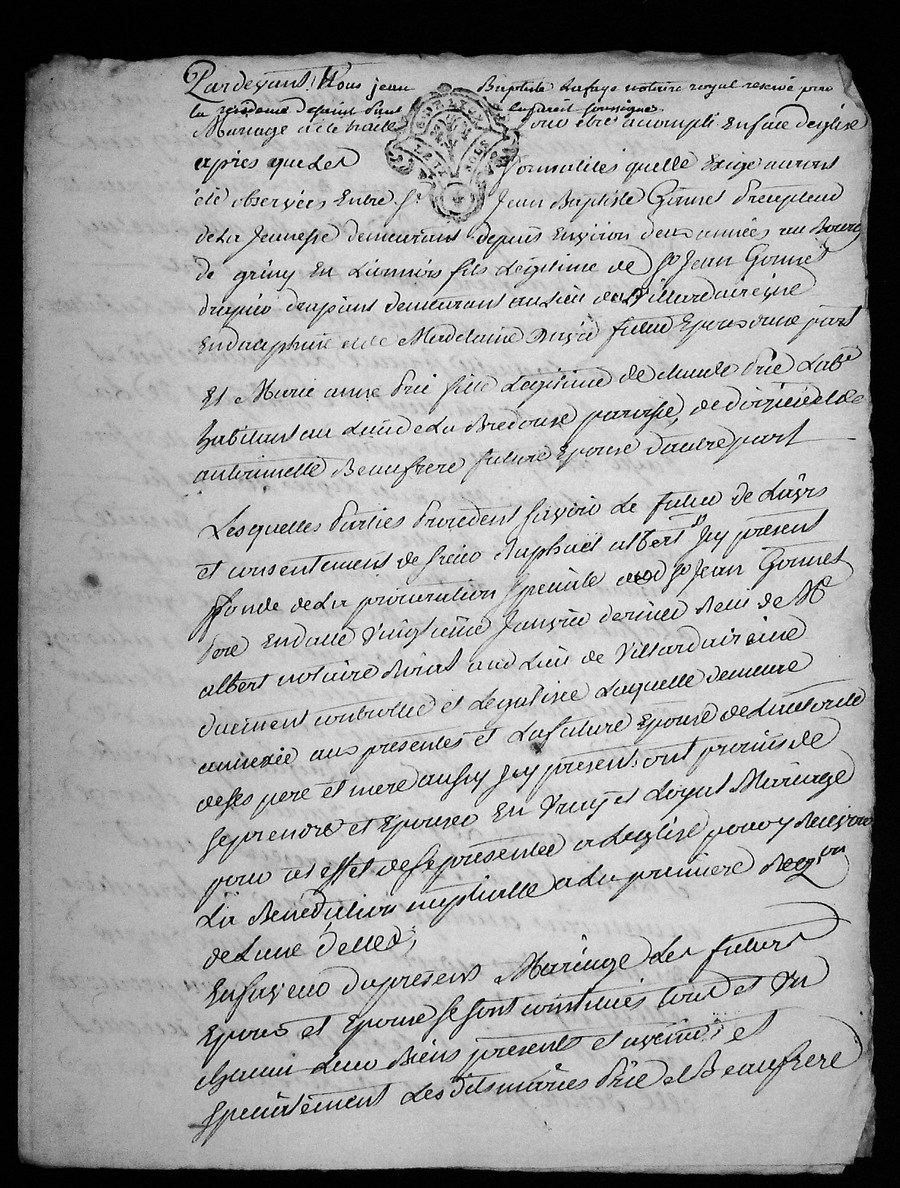 Pardevant Nous jean Baptiste Lafaye notaire royal reservé pour
la residence de saint soussigné
Mariage a été traité pour être acompli En face d'eglise
apres que Les formalités quelle Exige auront
été observées Entre Sr Jean Baptiste Gonnet Precepteur
de La Jeunesse demeurant depuis Environ deux années au Bourg
de griny En Lionnois fils Legitime de Sr Jean Gonnet
drapier drapant demeurant au Lieu de Villardaireine
En dauphiné et de Madelaine futur Epoux d'une part
Et Marie anne Prié fille Legitime de claude Prié Labr
habitant au Lieu de La Bredouse paroisse de et de
antoinette Beaufrere future Epouse d'autre part
Lesquelles Parties Procedent sçavoir Le futur de L'avis
et consentement de sieur Raphaël albert Icy present
fondé de La procuration speciale dud Sr Jean Gonnet
Pere En datte Vingtieme Janvier dernier Reçu de Me
albert notaire Royal aud Lieu de Villardaireine
duement controllée et Legalisée Laquelle demeure
annexée aux presentes et La future Epouse de L'autorité
de ses pere et mere aussy Icy present: ont promis de
se prendre et Epouser En Vray et Loyal Mariage
pour cet effet de se presenter a L'eglise pour y Recevoir
La Benediction nuptialle a La premiere Reqon
de L'une d'elles;
En faveur du present Mariage Les futurs
Epoux et Epouse se sont constitués tous et Un
chacun Leur Biens presents et avenir; et
specialement Les dits mariés Prié et Beaufrere